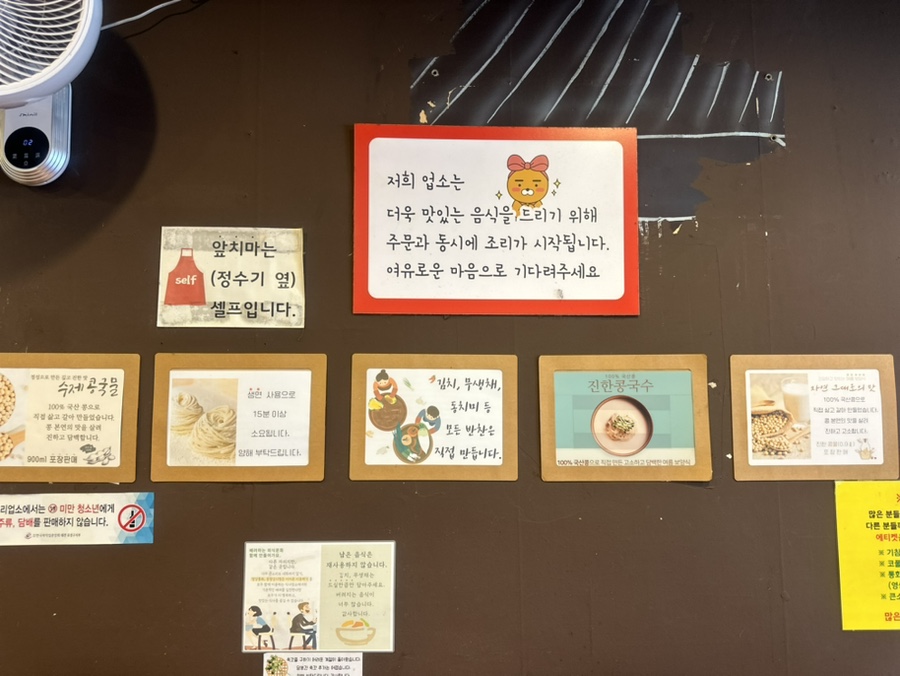 02
저희 업소는
더욱 맛있는 음식을 드리기 위해
주문과 동시에 조리가 시작됩니다.
여유로운 마음으로 기다려주세요
앞치마는
self
(정수기 옆)
셀프입니다.
수제 콩국물
100% 국산 콩으로
직접 삶고 갈아 만들었습니다.
콩 본연의 맛을 살려
진하고 담백합니다.
900ml 포장판매
생면 사용으로
15분 이상
소요됩니다.
양해 부탁드립니다.
김치, 무생채,
동치미 등
모든 반찬은
직접 만듭니다.
진한콩국수
100% 국산콩으로 직접 만든 고소하고 담백한 여름 보양식
100% 국산콩으로
직접 삶고 갈아 만들었습니다.
콩 본연의 맛을 살려
진하고 고소합니다.
포장 판매
리업소에서는 19 미만 청소년에게
주류, 담배를 판매하지 않습니다.
남은 음식은
재사용하지 않습니다.
김치, 무생채는
드실만큼만 담아주세요.
버려지는 음식이
너무 많습니다.
감사합니다.
많은 분들
다른 분들
에티켓
※ 기침
※ 코를
※ 통화
※ 큰소
많은